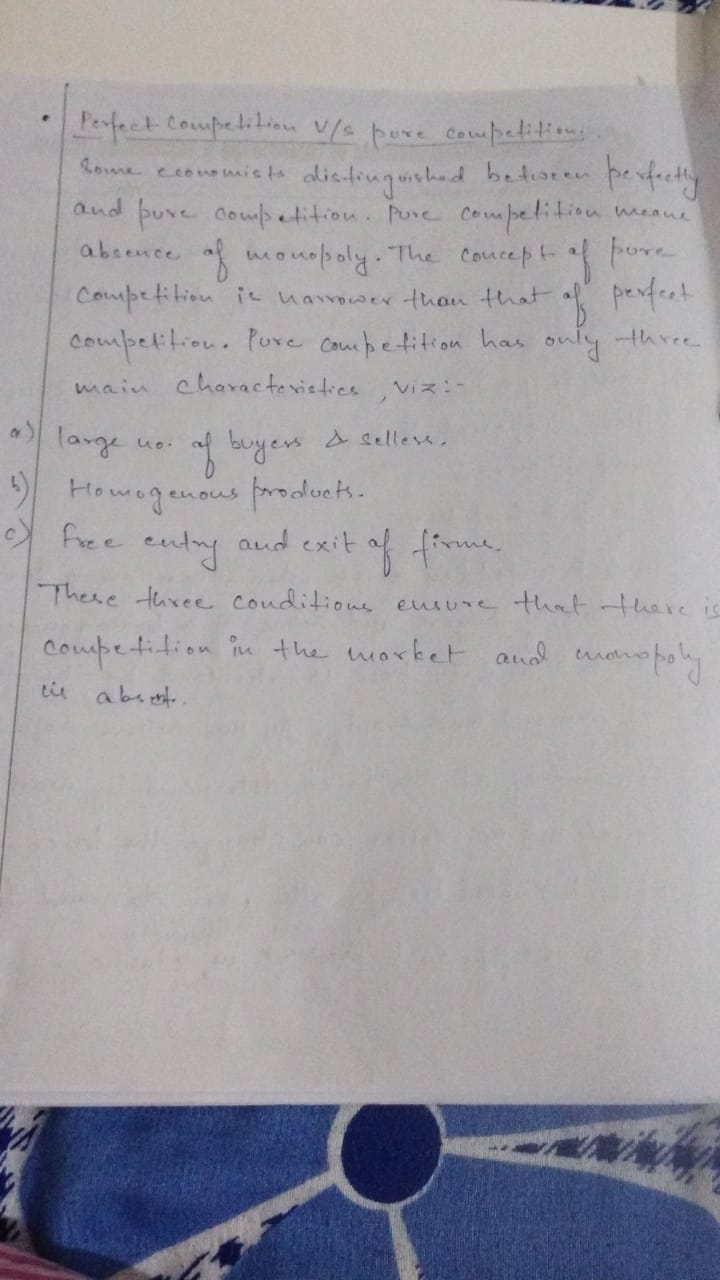 • Perfect Competition V/s pure competition.
Some economists distinguished between perfectly
and pure competition. Pure competition means
absence of monopoly. The concept of pure
competition is narrower than that of perfect
competition. Pure competition has only three
main characteristics, viz:-
a) large no. of buyers & sellers.
b) Homogenous products.
c) free entry and exit of firms
These three conditions ensure that there is
competition in the market and monopoly
is absent.